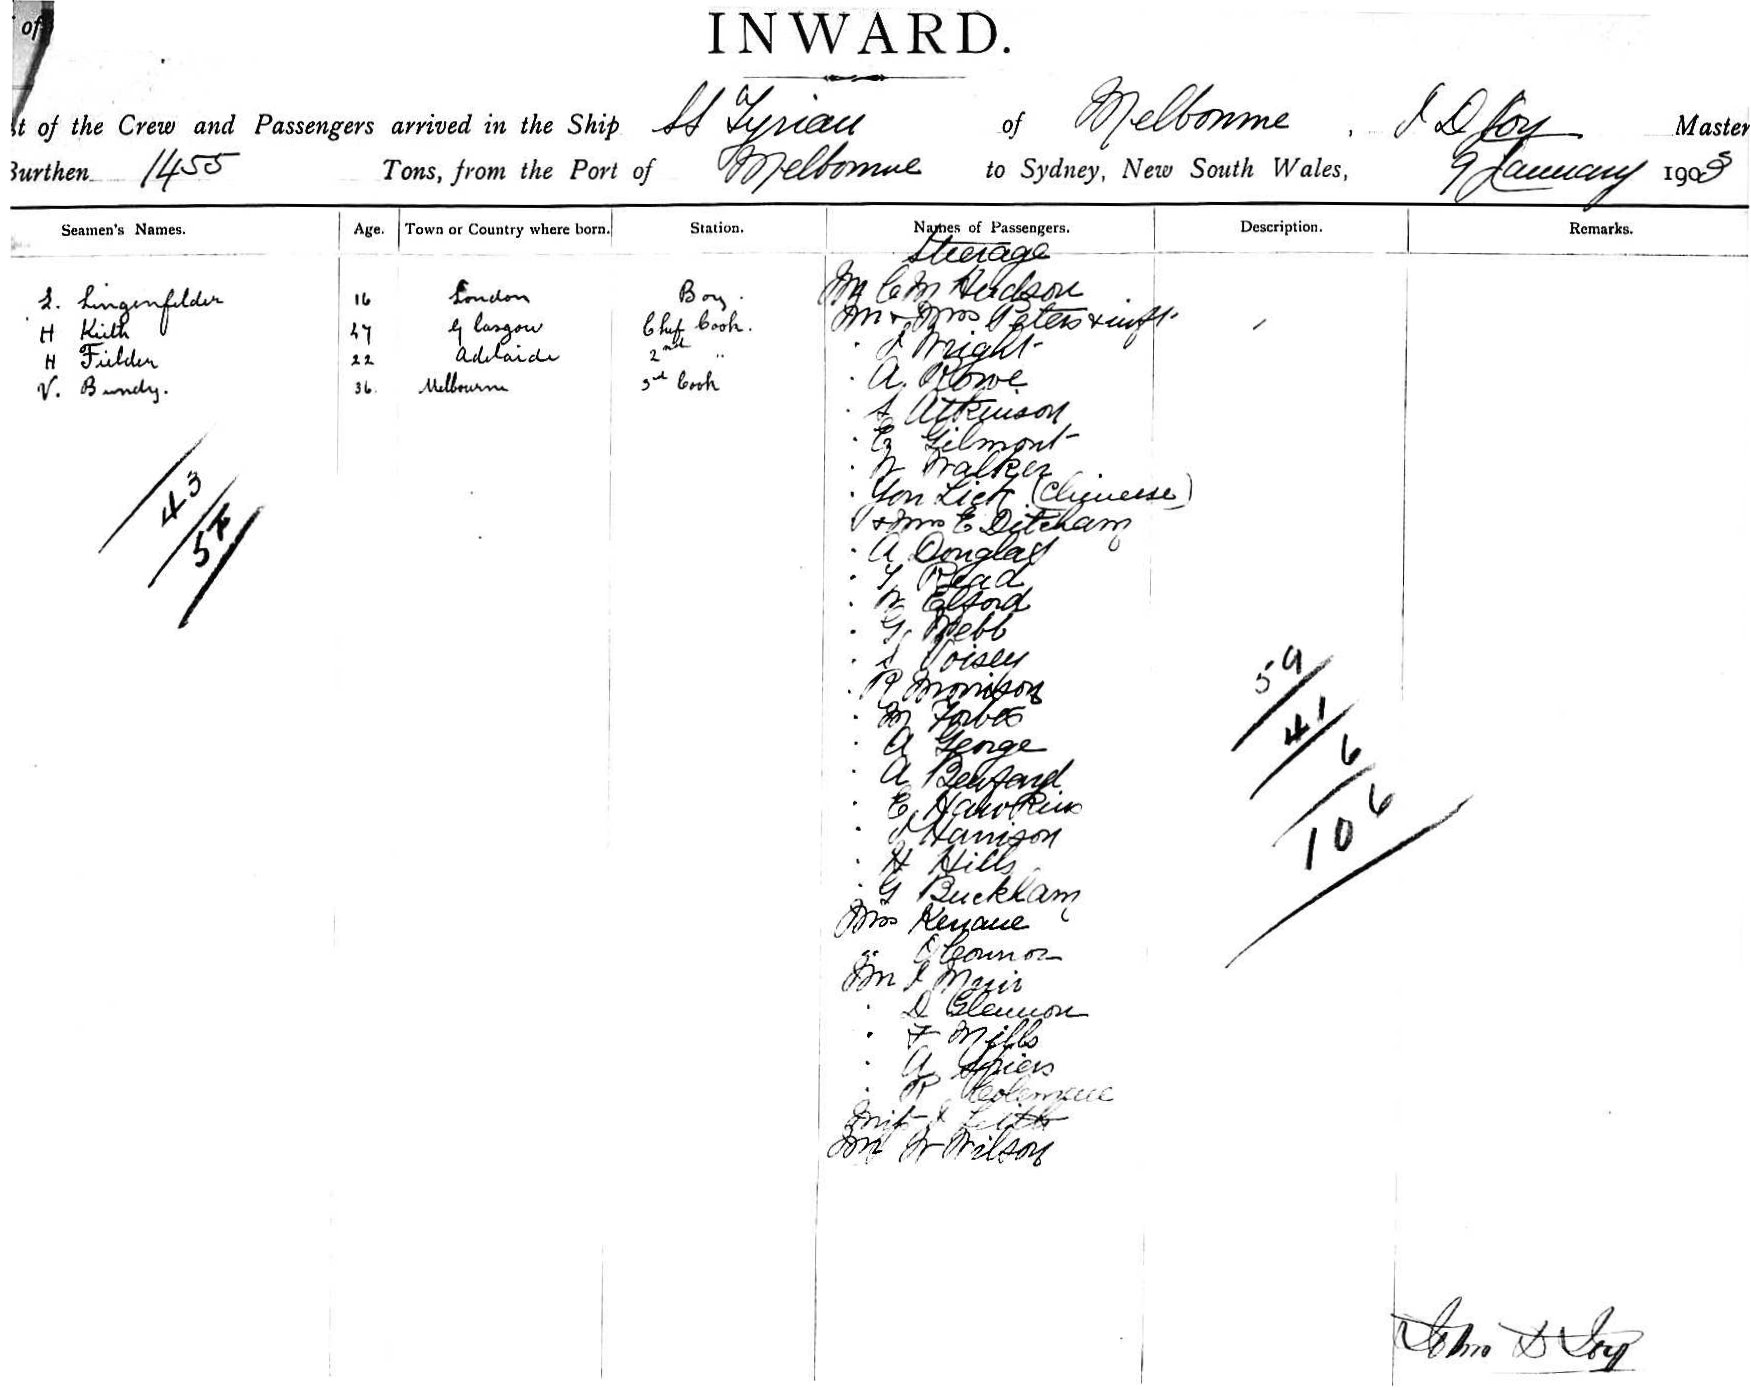 of
INWARD.
st of the Crew and Passengers arrived in the Ship SS Tyrian of Melbourne, J D Joy Master
Burthen 1455 Tons, from the Port of Melbourne to Sydney, New South Wales, 9 January 1903
Seamen's Names. Age. Town or Country where born. Station. Names of Passengers. Description. Remarks.
Steerage
L. Lingenfelder 16 London Boy. Mr C M Hudson
H Keith 47 Glasgow Chief Cook. Mr & Mrs Peters & inft
H Fielder 22 Adelaide 2nd " J Wright
V. Bundy. 36. Melbourne 3rd Cook A. Rowe
S Atkinson
E Gilmont
W Walker
Yon Lick (Chinese)
& Mrs E Ditcham
A Douglas
T Read
W Elford
G. Webb
J Voisey
R Morrison
M Forbes
A George
A
E Hawkins
J Harrison
H Hills
G Buckham
Mrs
" O'Connor
Mr J Muir
D Glennon
F Mills
A Spiers
R Colemane
J Leith
Mr W Wilson
43
/
59
41
6
106
John D Joy